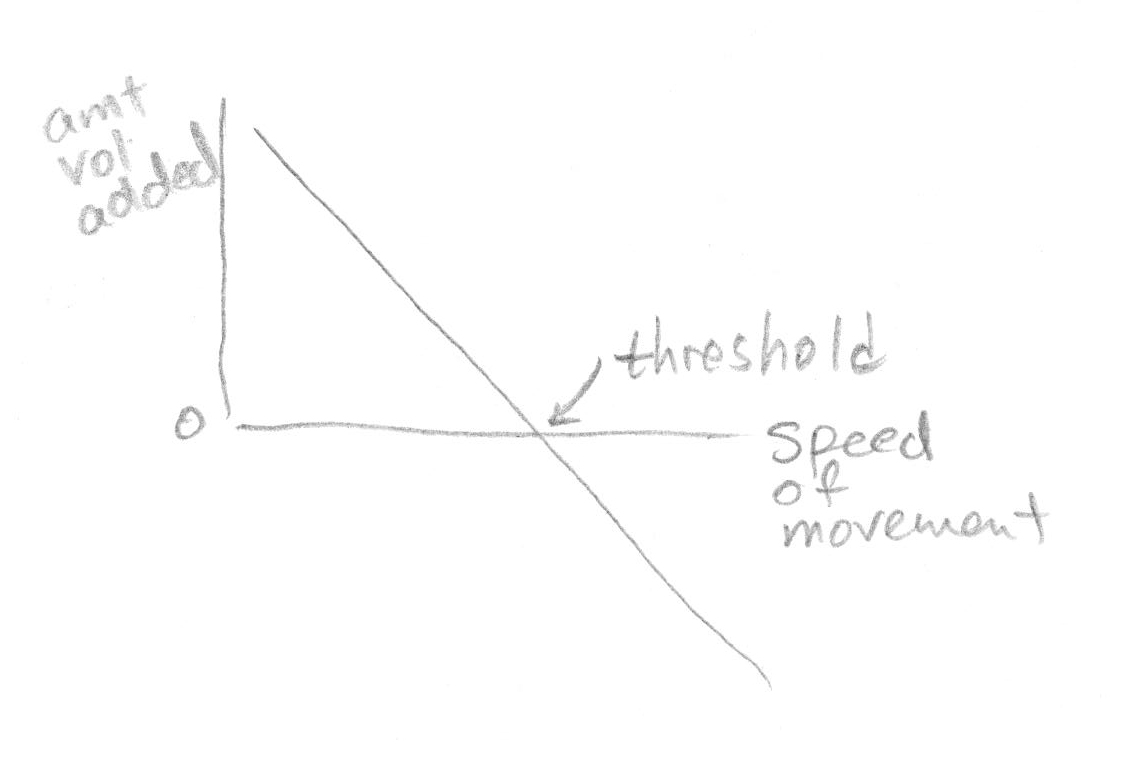 amt
vol
added
threshold
0
Speed
of
movement